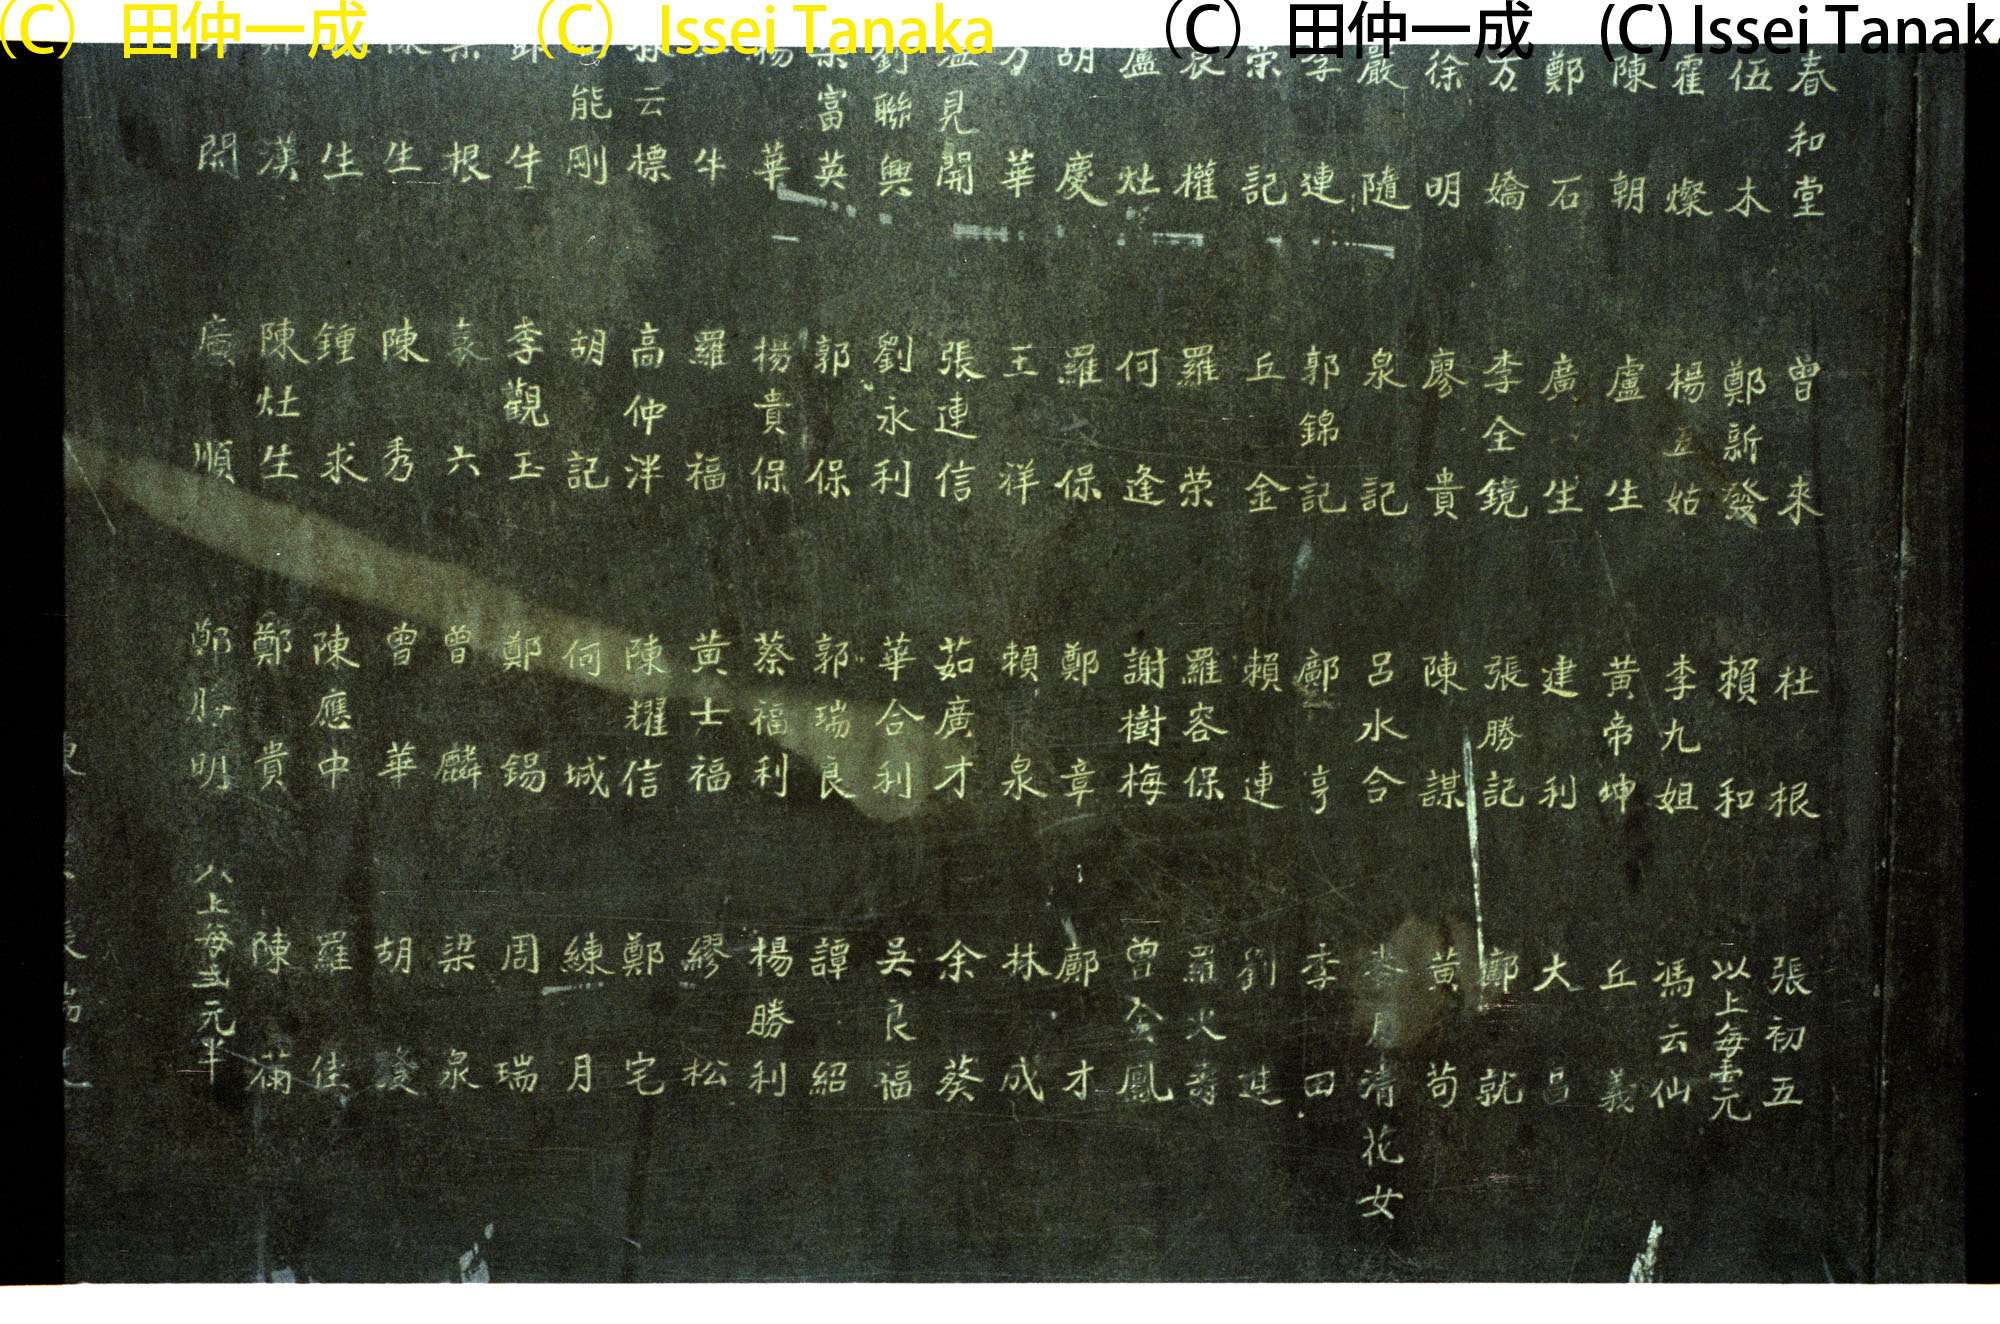 (C) 田仲一成 (C) Issei Tanaka (C) 田仲一成 (C) Issei Tanaka
春和堂 曾來 杜根 張初五
伍木 鄭新發 賴和 以上每壹元
霍燦 楊五姑 李九姐 馮云仙
陳朝 盧生 黃帝坤 丘義
鄭石 廣生 建利 大呂
方嬌 李全鏡 張勝記 鄺就
徐明 廖貴 陳謀 黃苟
嚴隨 泉記 呂水合 清花女
李連 郭錦記 鄺亨 李田
榮記 丘金 賴連 劉進
袁權 羅荣 羅容保 羅火壽
盧灶 何逢 謝樹梅 曾金鳳
胡慶 羅保 鄭章 鄺才
方華 王祥 賴泉 林成
溫見開 張連信 茹廣才 余葵
劉聯興 劉永利 華合利 吳良福
富英 郭保 郭瑞良 譚紹
楊華 楊貴保 蔡福利 楊勝利
牛 羅福 黃士福 繆松
云標 高仲泮 陳耀信 鄭宅
能剛 胡記 何城 練月
牛 李觀玉 鄭錫 周瑞
根 袁六 曾麟 梁泉
生 陳秀 曾華 胡發
生 鍾求 陳應中 羅佳
漢 陳灶生 鄭貴 陳滿
開 廣順 鄭勝明 以上每五元半